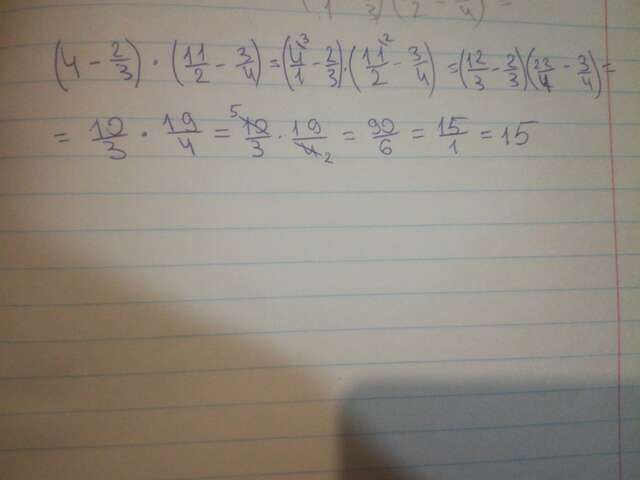 (4 - 2/3) · (11/2 - 3/4) = (4³/1 - 2/3) · (11²/2 - 3/4) = (12/3 - 2/3)(22/4 - 3/4) =
= 10/3 · 19/4 = ⁵10/3 · 19/4₂ = 90/6 = 15/1 = 15